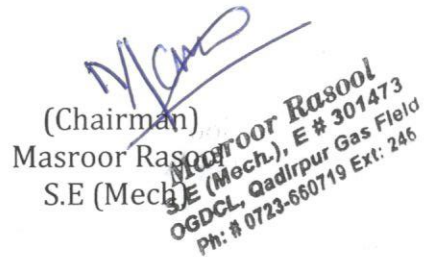 (Chairman)
Masroor Rasool
S.E (Mech)
Masroor Rasool
S.E (Mech.), E # 301473
OGDCL, Qadirpur Gas Field
Ph: # 0723-660719 Ext: 246